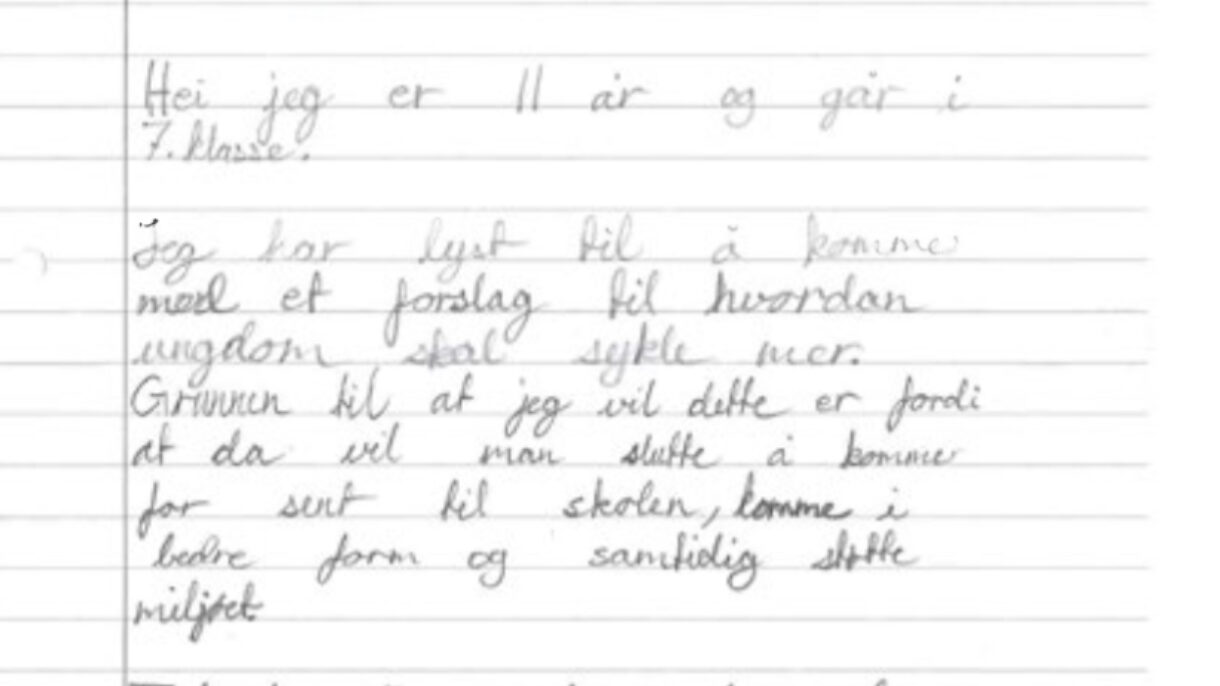 Hei jeg er 11 år og går i
7. klasse.
Jeg har lyst til å komme
med et forslag til hvordan
ungdom skal sykle mer.
Grunnen til at jeg vil dette er fordi
at da vil man slutte å komme
for sent til skolen, komme i
bedre form og samtidig støtte
miljøet.